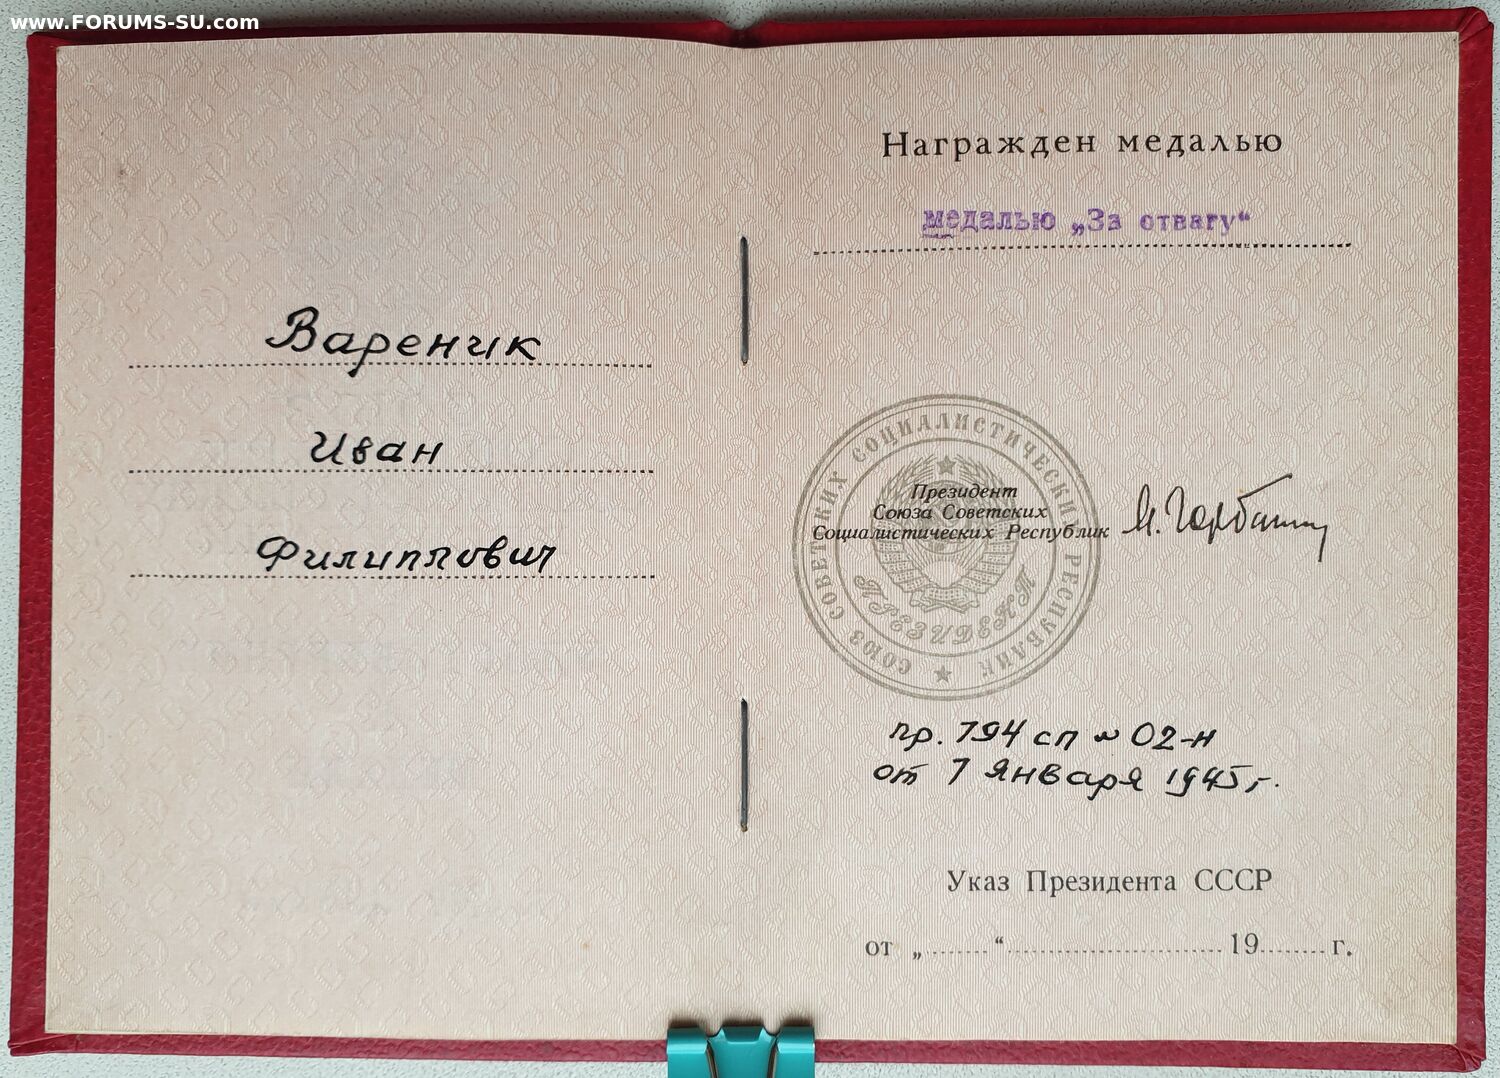 www.FORUMS-SU.com
Вареник
Иван
Филиппович
Награжден медалью
медалью „За отвагу“
СОЮЗ СОВЕТСКИХ СОЦИАЛИСТИЧЕСКИХ РЕСПУБЛИК
ПРЕЗИДЕНТ
Президент
Союза Советских
Социалистических Республик
М. Горбачев
пр. 794 сп № 02-н
от 7 января 1945 г.
Указ Президента СССР
от „ “ 19 г.